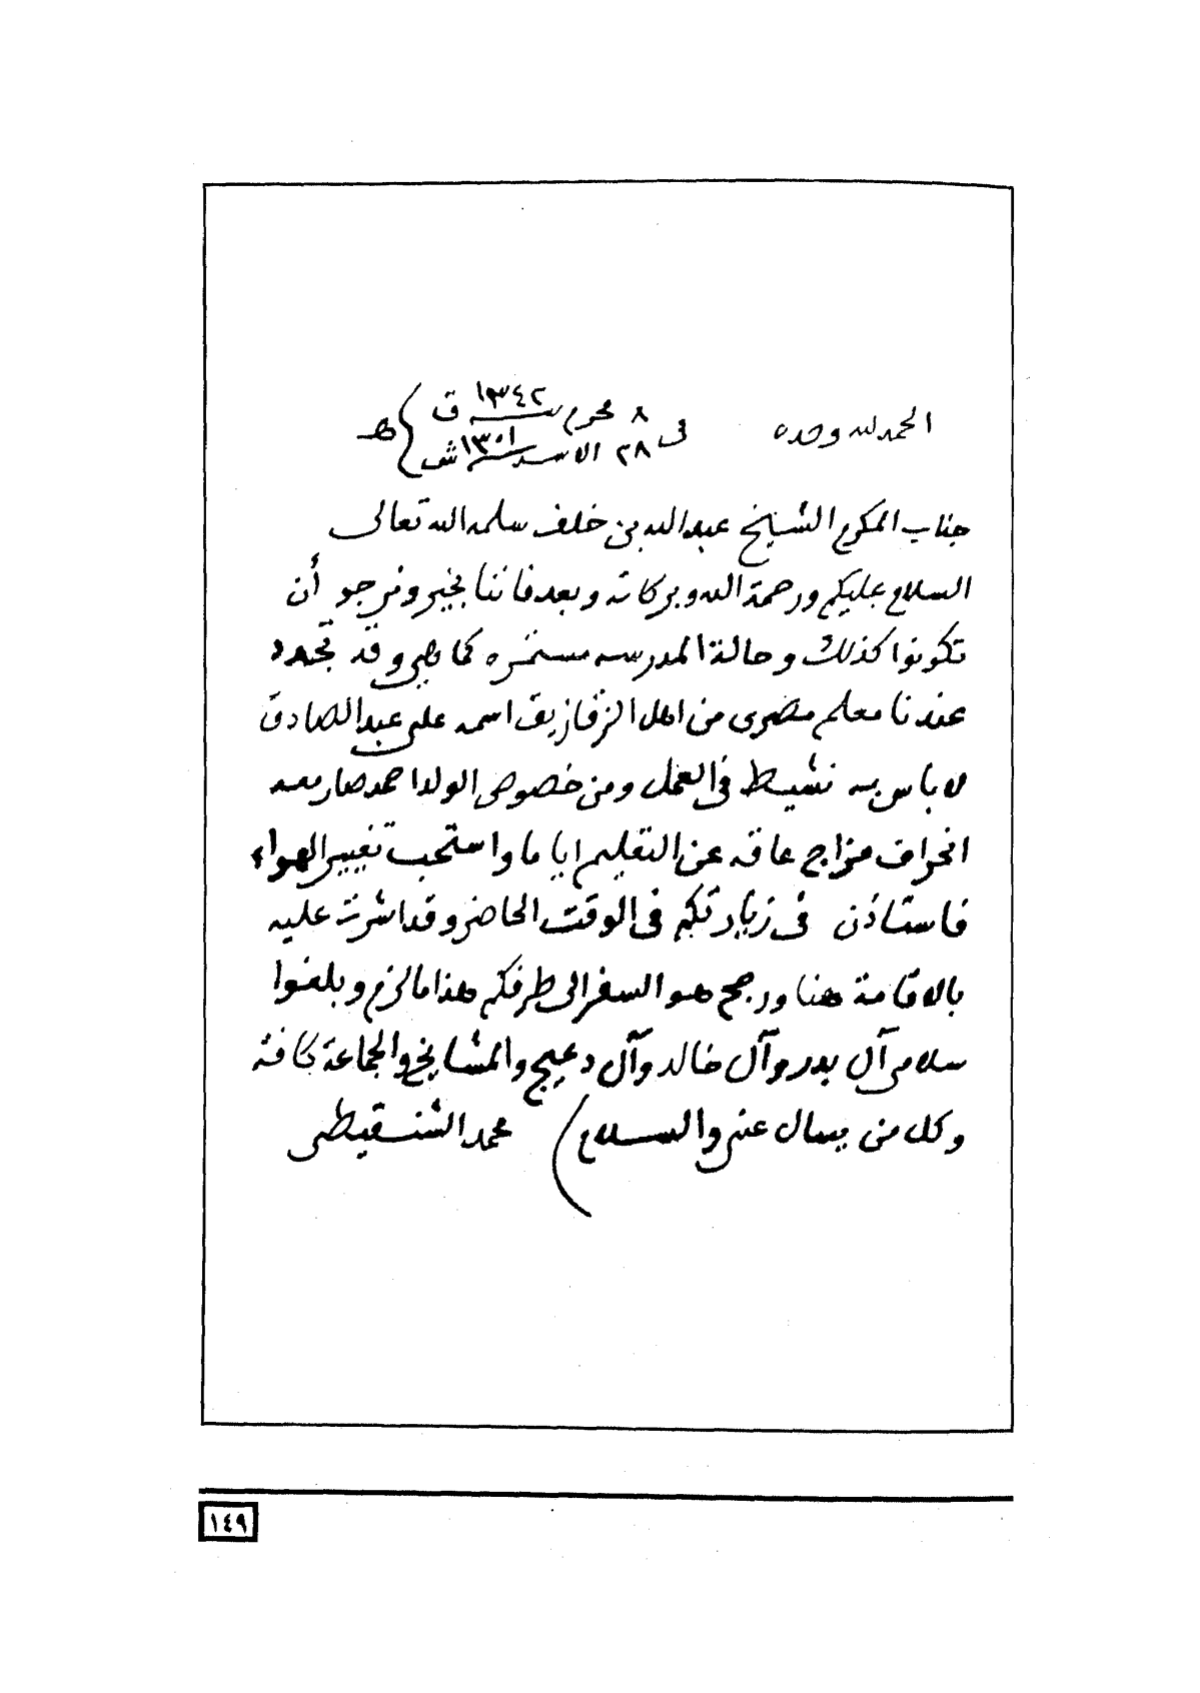 الحمد لله وحده في ٨ محرم سنة ١٣٤٢ ق
٢٨ الاسد سنة ١٣٠١ ش هـ
جناب المكرم الشيخ عبد الله بن خلف سلمه الله تعالى
السلام عليكم ورحمة الله وبركاته وبعد فاننا بخير ونرجو أن
تكونوا كذلك وحالة المدرسه مستمره كما هي وقد تجدد
عندنا معلم مصرى من اهل الزقازيق اسمه على عبد الصادق
لا باس به نشيط في العمل ومن خصوص الولد احمد صار معه
انحراف مزاج عاقه عن التعليم اياما واستحب تغيير الهواء
فاستأذن في زيارتكم في الوقت الحاضر وقد اشرت عليه
بالاقامة هنا ورجح هو السفر الى طرفكم هذا ما لزم وبلغوا
سلامى آل بدر وآل خالد وآل دعيج والمشايخ والجماعة كافة
وكل من يسال عنى والسلام محمد الشنقيطى
١٤٩